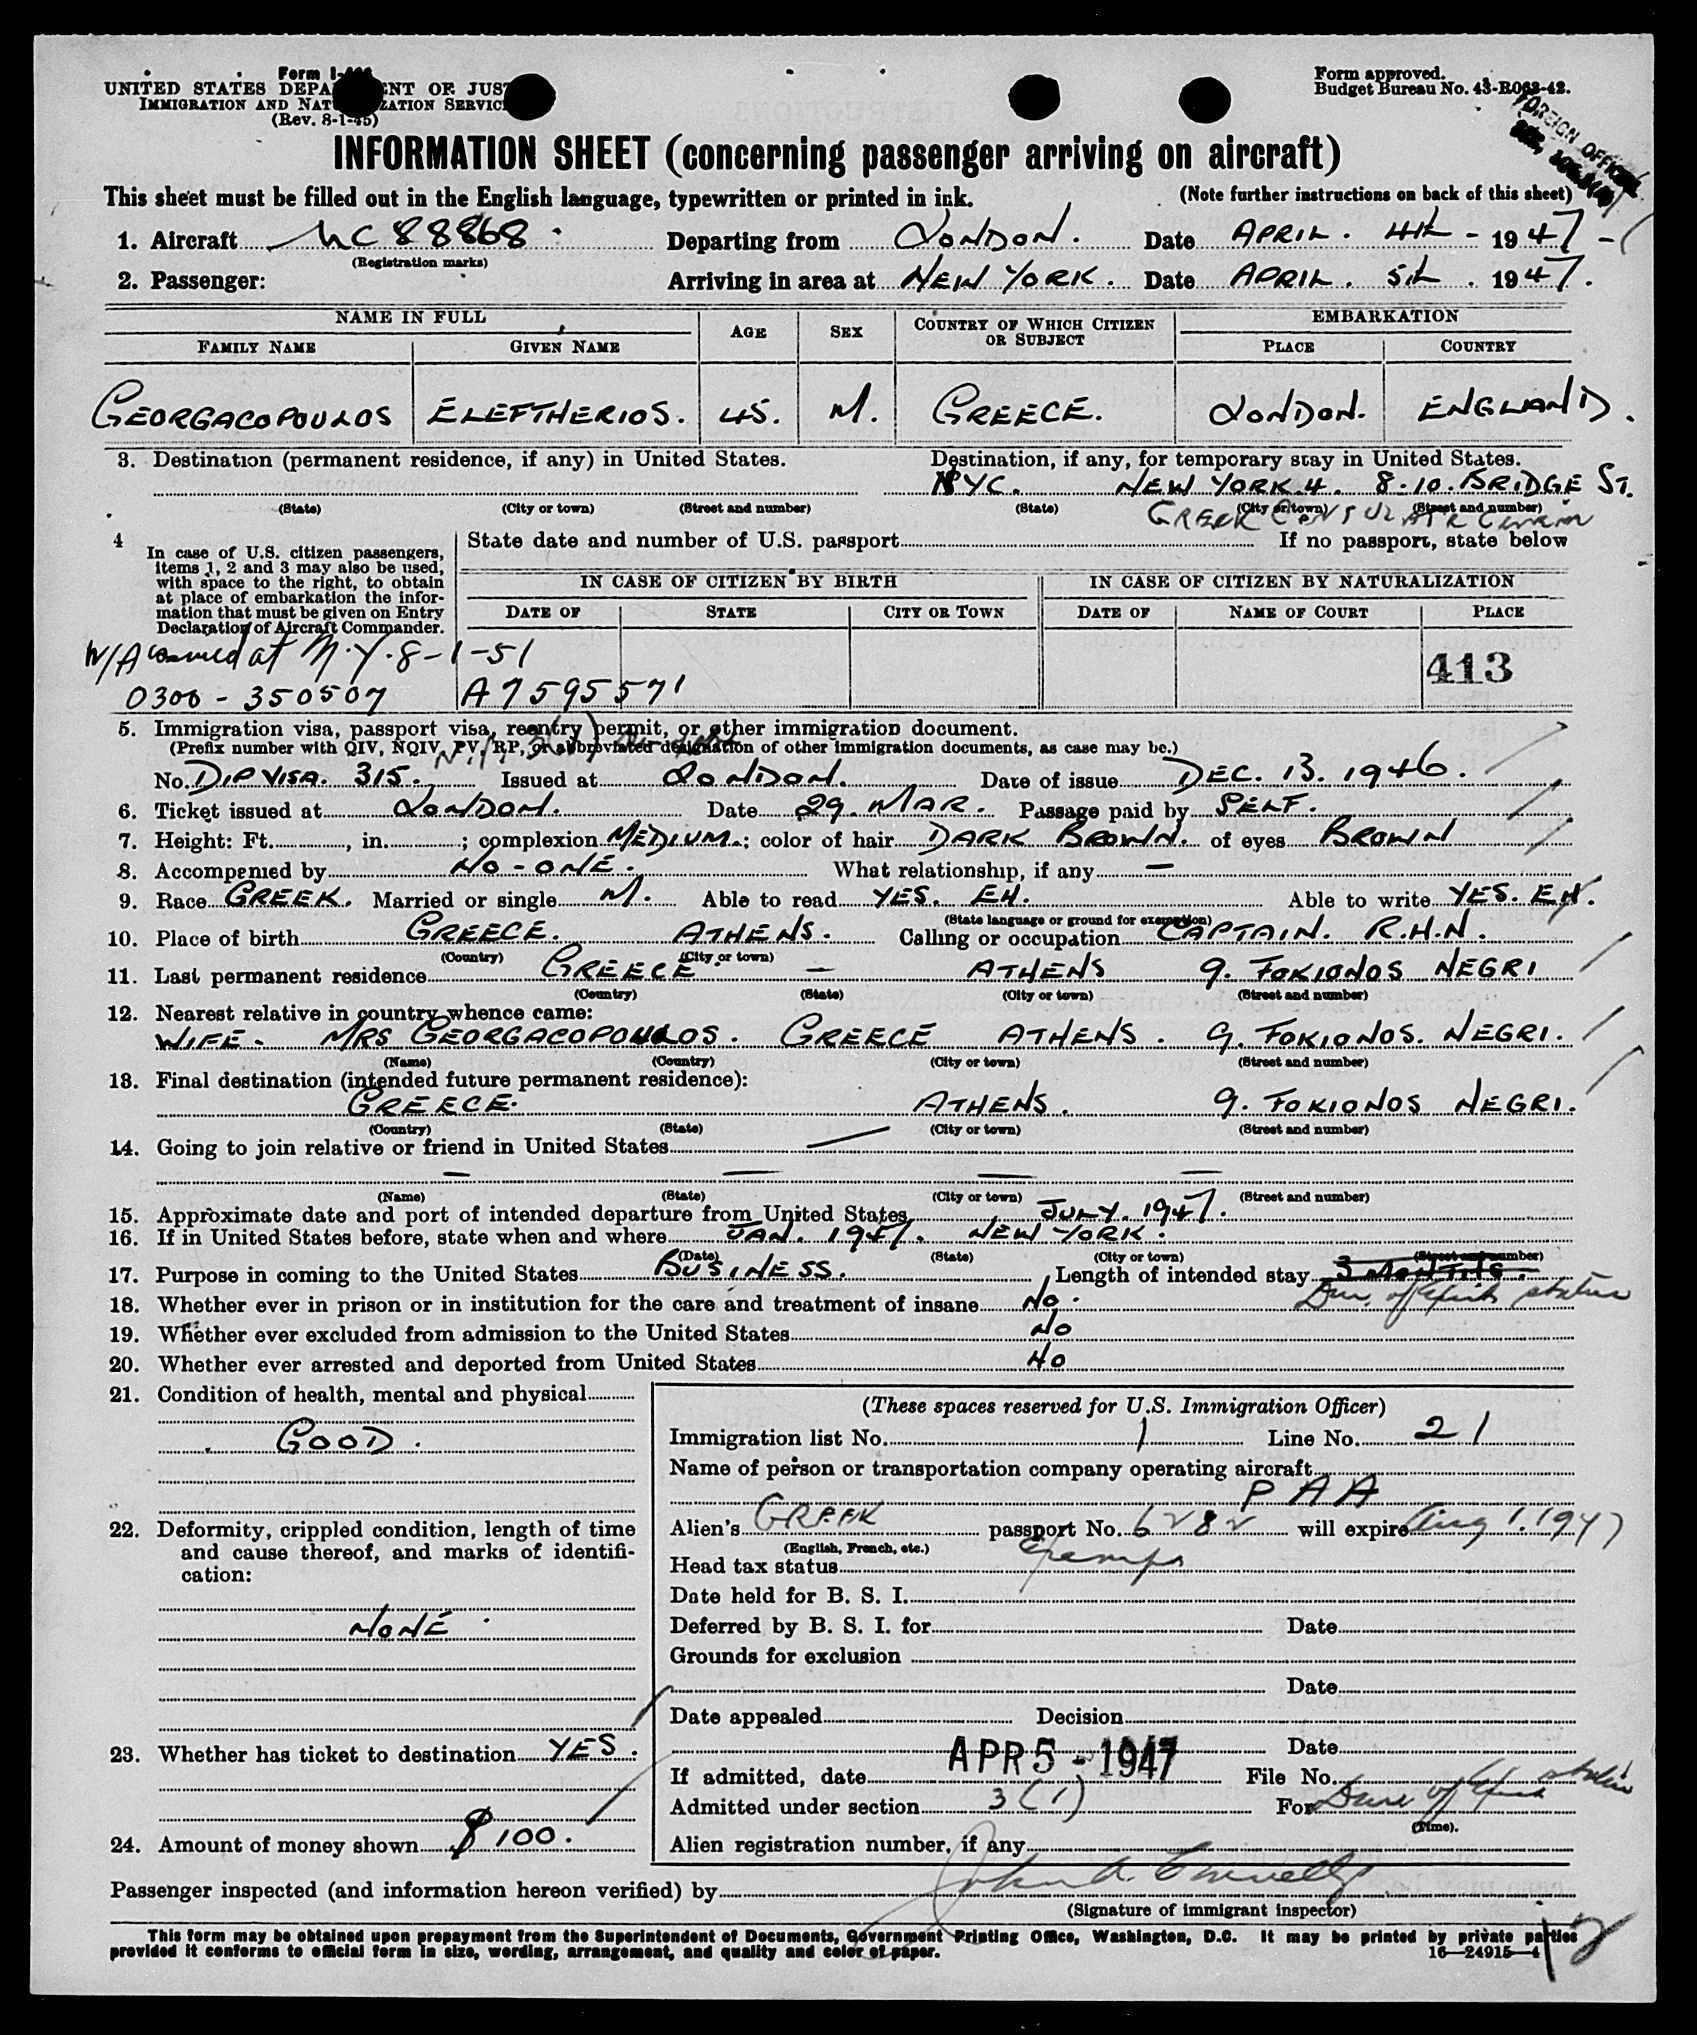 Form I-
UNITED STATES DEPA ENT OF JUST
IMMIGRATION AND NAT ZATION SERVIC
(Rev. 8-1-45)
Form approved.
Budget Bureau No. 43-R063-42.
FOREIGN OFFICIAL
INFORMATION SHEET (concerning passenger arriving on aircraft)
This sheet must be filled out in the English language, typewritten or printed in ink. (Note further instructions on back of this sheet)
1. Aircraft NC 88868. Departing from LONDON. Date APRIL. 4th - 1947 -
(Registration marks)
2. Passenger: Arriving in area at NEW YORK. Date APRIL. 5th. 1947.
NAME IN FULL AGE SEX COUNTRY OF WHICH CITIZEN OR SUBJECT EMBARKATION
FAMILY NAME GIVEN NAME PLACE COUNTRY
GEORGACOPOULOS ELEFTHERIOS. 45. M. GREECE. LONDON. ENGLAND.
3. Destination (permanent residence, if any) in United States. Destination, if any, for temporary stay in United States.
NYC. NEW YORK. 4. 8-10. BRIDGE ST.
(State) (City or town) (Street and number) (State) (City or town) (Street and number)
GREEK CONSULATE
4 In case of U.S. citizen passengers, items 1, 2 and 3 may also be used, with space to the right, to obtain at place of embarkation the information that must be given on Entry Declaration of Aircraft Commander.
State date and number of U.S. passport If no passport, state below
IN CASE OF CITIZEN BY BIRTH IN CASE OF CITIZEN BY NATURALIZATION
DATE OF STATE CITY OR TOWN DATE OF NAME OF COURT PLACE
W/A issued at N.Y. 8-1-51
0300 - 350507 A7595571 413
5. Immigration visa, passport visa, reentry permit, or other immigration document.
(Prefix number with QIV, NQIV, PV, RP, or abbreviated designation of other immigration documents, as case may be.)
No. DIP VISA. 315. Issued at LONDON. Date of issue DEC. 13. 1946.
6. Ticket issued at LONDON. Date 29. MAR. Passage paid by SELF.
7. Height: Ft. , in. ; complexion MEDIUM.; color of hair DARK BROWN. of eyes BROWN
8. Accompanied by NO-ONE. What relationship, if any —
9. Race GREEK. Married or single M. Able to read YES. EN. Able to write YES. EN.
(State language or ground for exemption)
10. Place of birth GREECE. ATHENS. Calling or occupation CAPTAIN. R.H.N.
(Country) (City or town)
11. Last permanent residence GREECE — ATHENS 9. FOKIONOS NEGRI
(Country) (State) (City or town) (Street and number)
12. Nearest relative in country whence came:
WIFE. MRS GEORGACOPOULOS. GREECE ATHENS. 9. FOKIONOS. NEGRI.
(Name) (Country) (City or town) (Street and number)
13. Final destination (intended future permanent residence):
GREECE. ATHENS. 9. FOKIONOS NEGRI.
(Country) (State) (City or town) (Street and number)
14. Going to join relative or friend in United States —
— — — —
(Name) (State) (City or town) (Street and number)
15. Approximate date and port of intended departure from United States JULY. 1947.
16. If in United States before, state when and where JAN. 1947. NEW YORK.
(Date) (State) (City or town) (Street and number)
17. Purpose in coming to the United States BUSINESS. Length of intended stay 3 MONTHS.
Dur. of status
18. Whether ever in prison or in institution for the care and treatment of insane NO.
19. Whether ever excluded from admission to the United States NO
20. Whether ever arrested and deported from United States NO
21. Condition of health, mental and physical
GOOD.
22. Deformity, crippled condition, length of time and cause thereof, and marks of identification:
NONE
23. Whether has ticket to destination YES.
24. Amount of money shown $100.
(These spaces reserved for U.S. Immigration Officer)
Immigration list No. 1 Line No. 21
Name of person or transportation company operating aircraft
PAA
Alien's GREEK passport No. 6282 will expire Aug 1. 1947
(English, French, etc.)
Head tax status Exempt
Date held for B. S. I.
Deferred by B. S. I. for Date
Grounds for exclusion
Date
Date appealed Decision
Date
If admitted, date APR 5 - 1947 File No.
Admitted under section 3(1) For Dur. of status
(Time).
Alien registration number, if any
Passenger inspected (and information hereon verified) by John A. Connelly
(Signature of immigrant inspector)
This form may be obtained upon prepayment from the Superintendent of Documents, Government Printing Office, Washington, D.C. It may be printed by private parties
provided it conforms to official form in size, wording, arrangement, and quality and color of paper. 16—24915—4